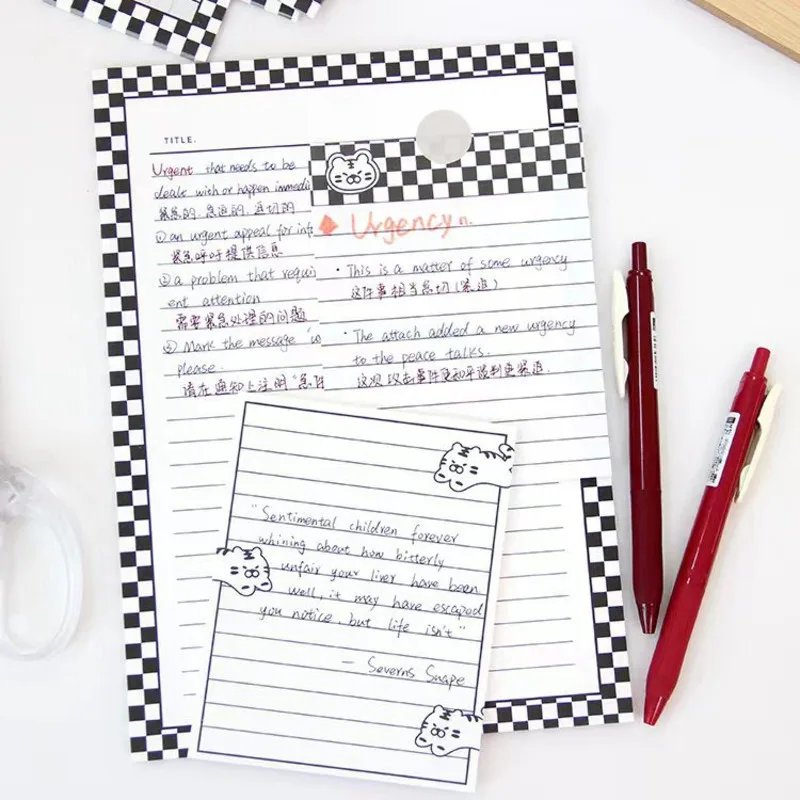 TITLE.
Urgent that needs to be
dealt wish or happen immedi
紧急的.急迫的.迫切的
① an urgent appeal for inf
紧急呼吁提供信息
② a problem that requi
ent attention
需要紧急处理的问题
③ Mark the message "
please.
请在通知上注明"急件
Urgency n.
· This is a matter of some urgency
这件事相当急切(紧迫)
· The attach added a new urgency
to the peace talks.
这次攻击事件使和平谈判更紧迫.
"Sentimental children forever
whining about how bitterly
unfair your liver have been
well, it may have escaped
you notice, but life isn't"
— Severns Snape